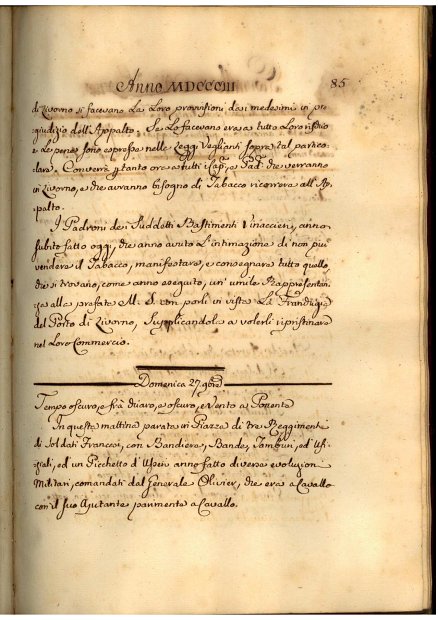 Anno MDCCCIII 85
di Livorno si facevano La Loro provvisioni da i medesimi in pre
giudizio dell'Appalto. Se Lo facevano era a tutto Loro rischio
e Le pene sono espresse nelle Leggi Veglianti sopra tal partico
lare. Converrà ora a tutti i che verranno
in Livorno, e che avranno bisogno di Tabacco ricorrere all'Ap
palto.
I Padroni dei Suddetti Bastimenti Vinaccieri, anno
subito fatto oggi, che anno avuto L'intimazione di non più
vendere il Tabacco, manifestare, e consegnare tutto quello
che si trovano, come anno eseguito, un'umile Rappresentan
za alla prefata M. S. con porli in vista La Franchigia
del Porto di Livorno, Supplicandola a volerli ripristinare
nel Loro Commercio.
Domenica 27. 9bre
Tempo oscuro, e frà chiaro, e oscuro, e Vento a Ponente
In questa mattina parata in Piazza di tre Reggimenti
di Soldati Francesi, con Bandiere, Bande, Tamburi, ed Uffi
ziali, ed un Picchetto d'Usseri anno fatto diverse evoluzioni
Militari, comandati dal Generale Olivier, che era a Cavallo
con il suo Ajutante parimente a Cavallo.